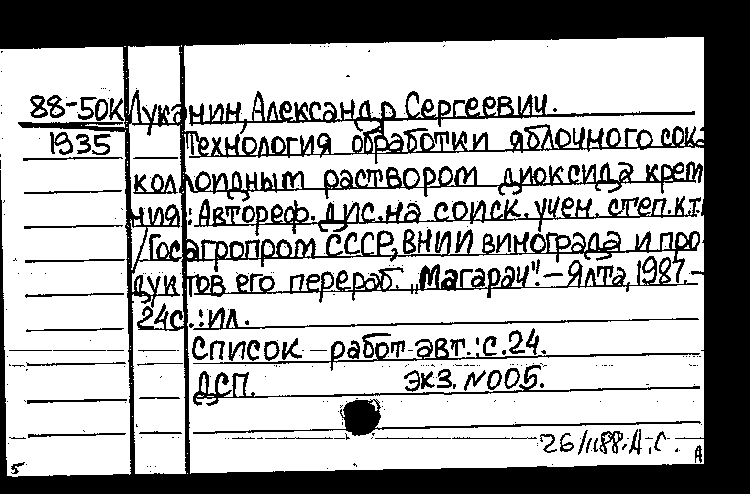 88-50К Луканин, Александр Сергеевич.
1935 Технология обработки яблочного сока
коллоидным раствором диоксида крем
ния: Автореф. дис. на соиск. учен. степ. к.т.
/Госагропром СССР, ВНИИ винограда и про
дуктов его перераб. „Магарач". – Ялта, 1987. –
24с.: ил.
Список работ авт.: с. 24.
ДСП. Экз. №005.
26/II88. А.С.
5